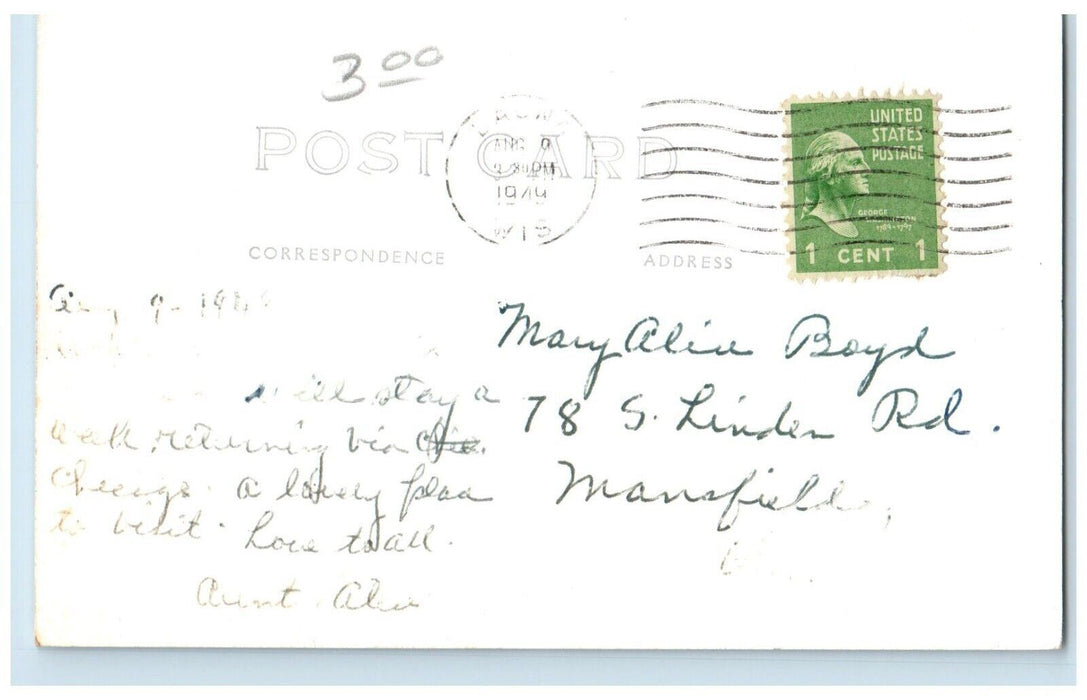 3.00
POST CARD
AUG 9
PM
1949
WIS
UNITED
STATES
POSTAGE
GEORGE
WASHINGTON
1789-1797
1 CENT 1
CORRESPONDENCE
ADDRESS
Aug 9-
will stay a
week, returning via
Chicago. a lovely place
to visit. Love to all.
Aunt Alice
Mary Alice Boyd
78 S. Linden Rd.
Mansfield,